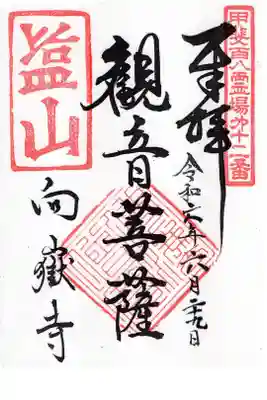 甲斐百八霊場㐧十二番
奉拝
令和六年六月二九日
觀音菩薩
塩山
向嶽寺